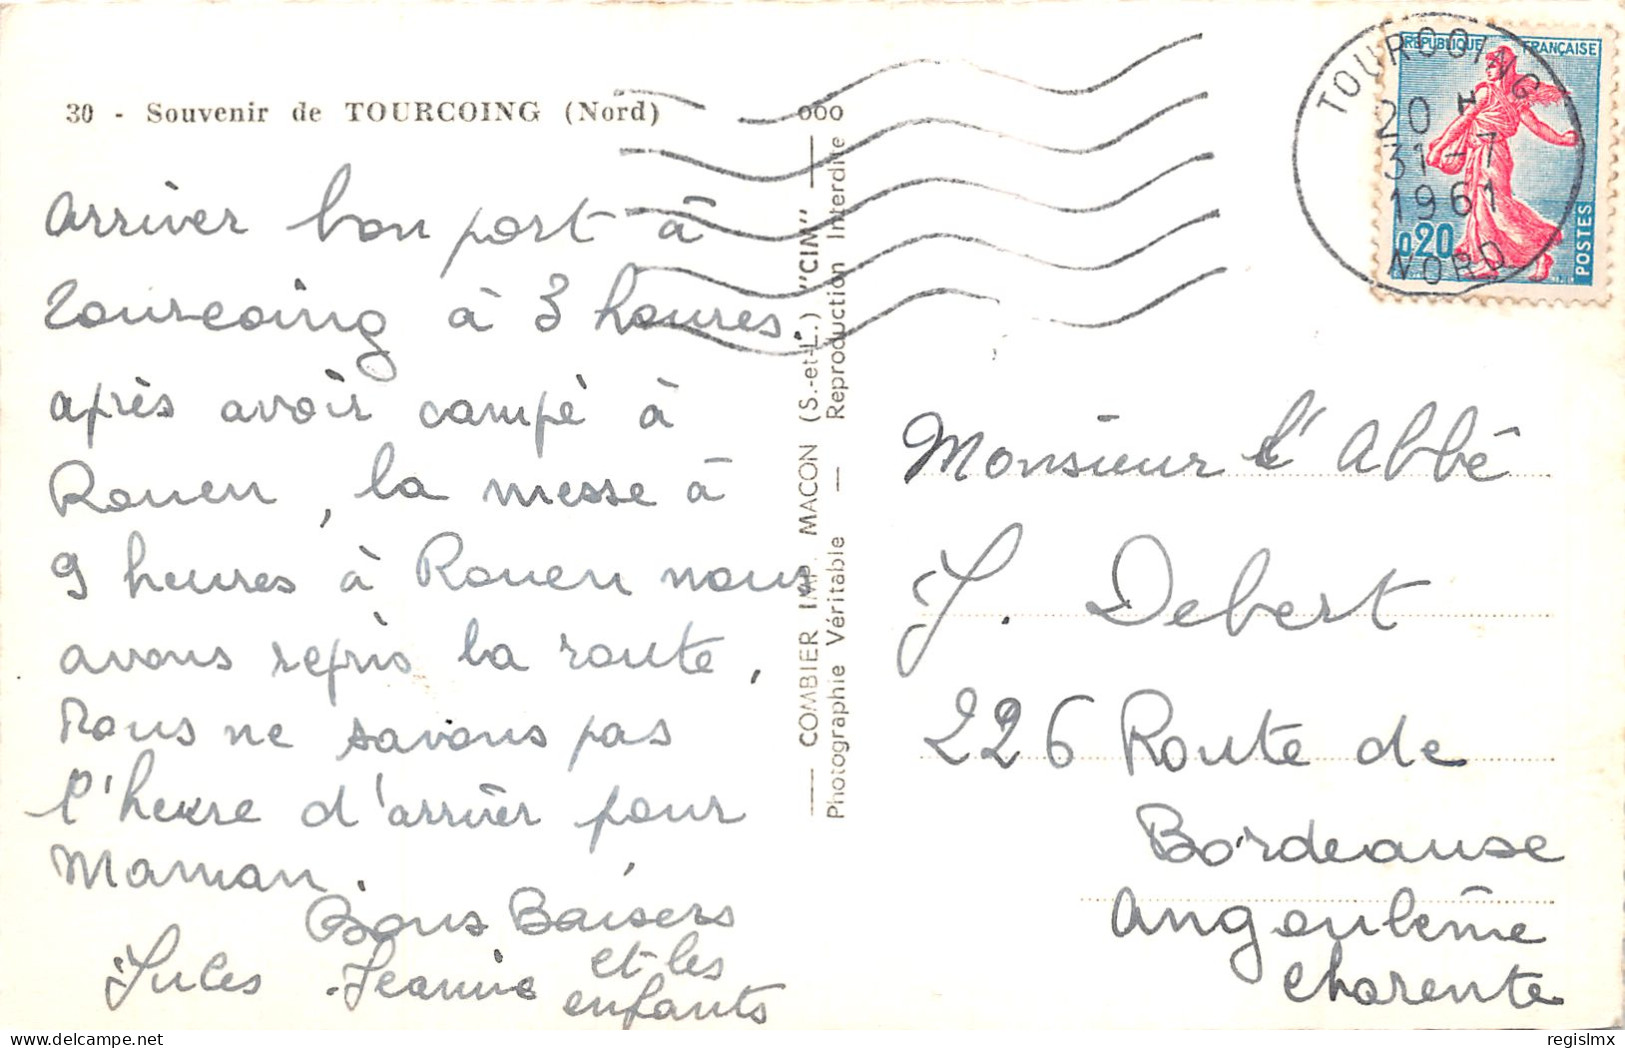 30 - Souvenir de TOURCOING (Nord)
arriver bon port à
Tourcoing à 3 heures.
après avoir campé à
Rouen, la messe à
9 heures à Rouen nous
avons repris la route,
Nous ne savons pas
l'heure d'arriver pour
Maman.
Bons Baisers
Jules Jeanne et les
enfants
COMBIER IMP. MACON (S.-et-L.) "CIM"
Photographie Véritable — Reproduction Interdite
000
TOURCOING
20 H
31-7
1961
NORD
RÉPUBLIQUE FRANÇAISE
0,20
POSTES
Monsieur l'Abbé
J. Debert
226 Route de
Bordeause
Angoulême
Charente
regislmx